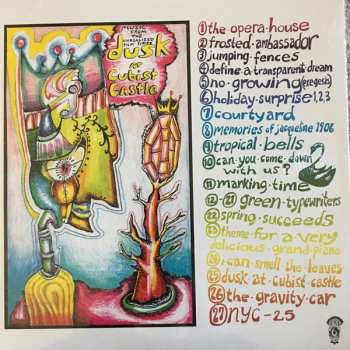 MUSIC
FROM
THE
UNREALIZED
FILM SCRIPT
dusk
at
Cubist
Castle
1 the opera·house
2 frosted·ambassador
3 jumping·fences
4 define·a·transparent·dream
5 no·growing (exegesis)
6 holiday·surprise 1,2,3
7 courtyard
8 memories of jacqueline 1906
9 tropical·bells
10 can·you·come·down
with us?
11 marking·time
12-21 green·typewriters
22 spring·succeeds
23 theme·for·a·very
delicious·grand·piano
24 i·can·smell·the·leaves
25 dusk·at·cubist·castle
26 the·gravity·car
27 NYC-25